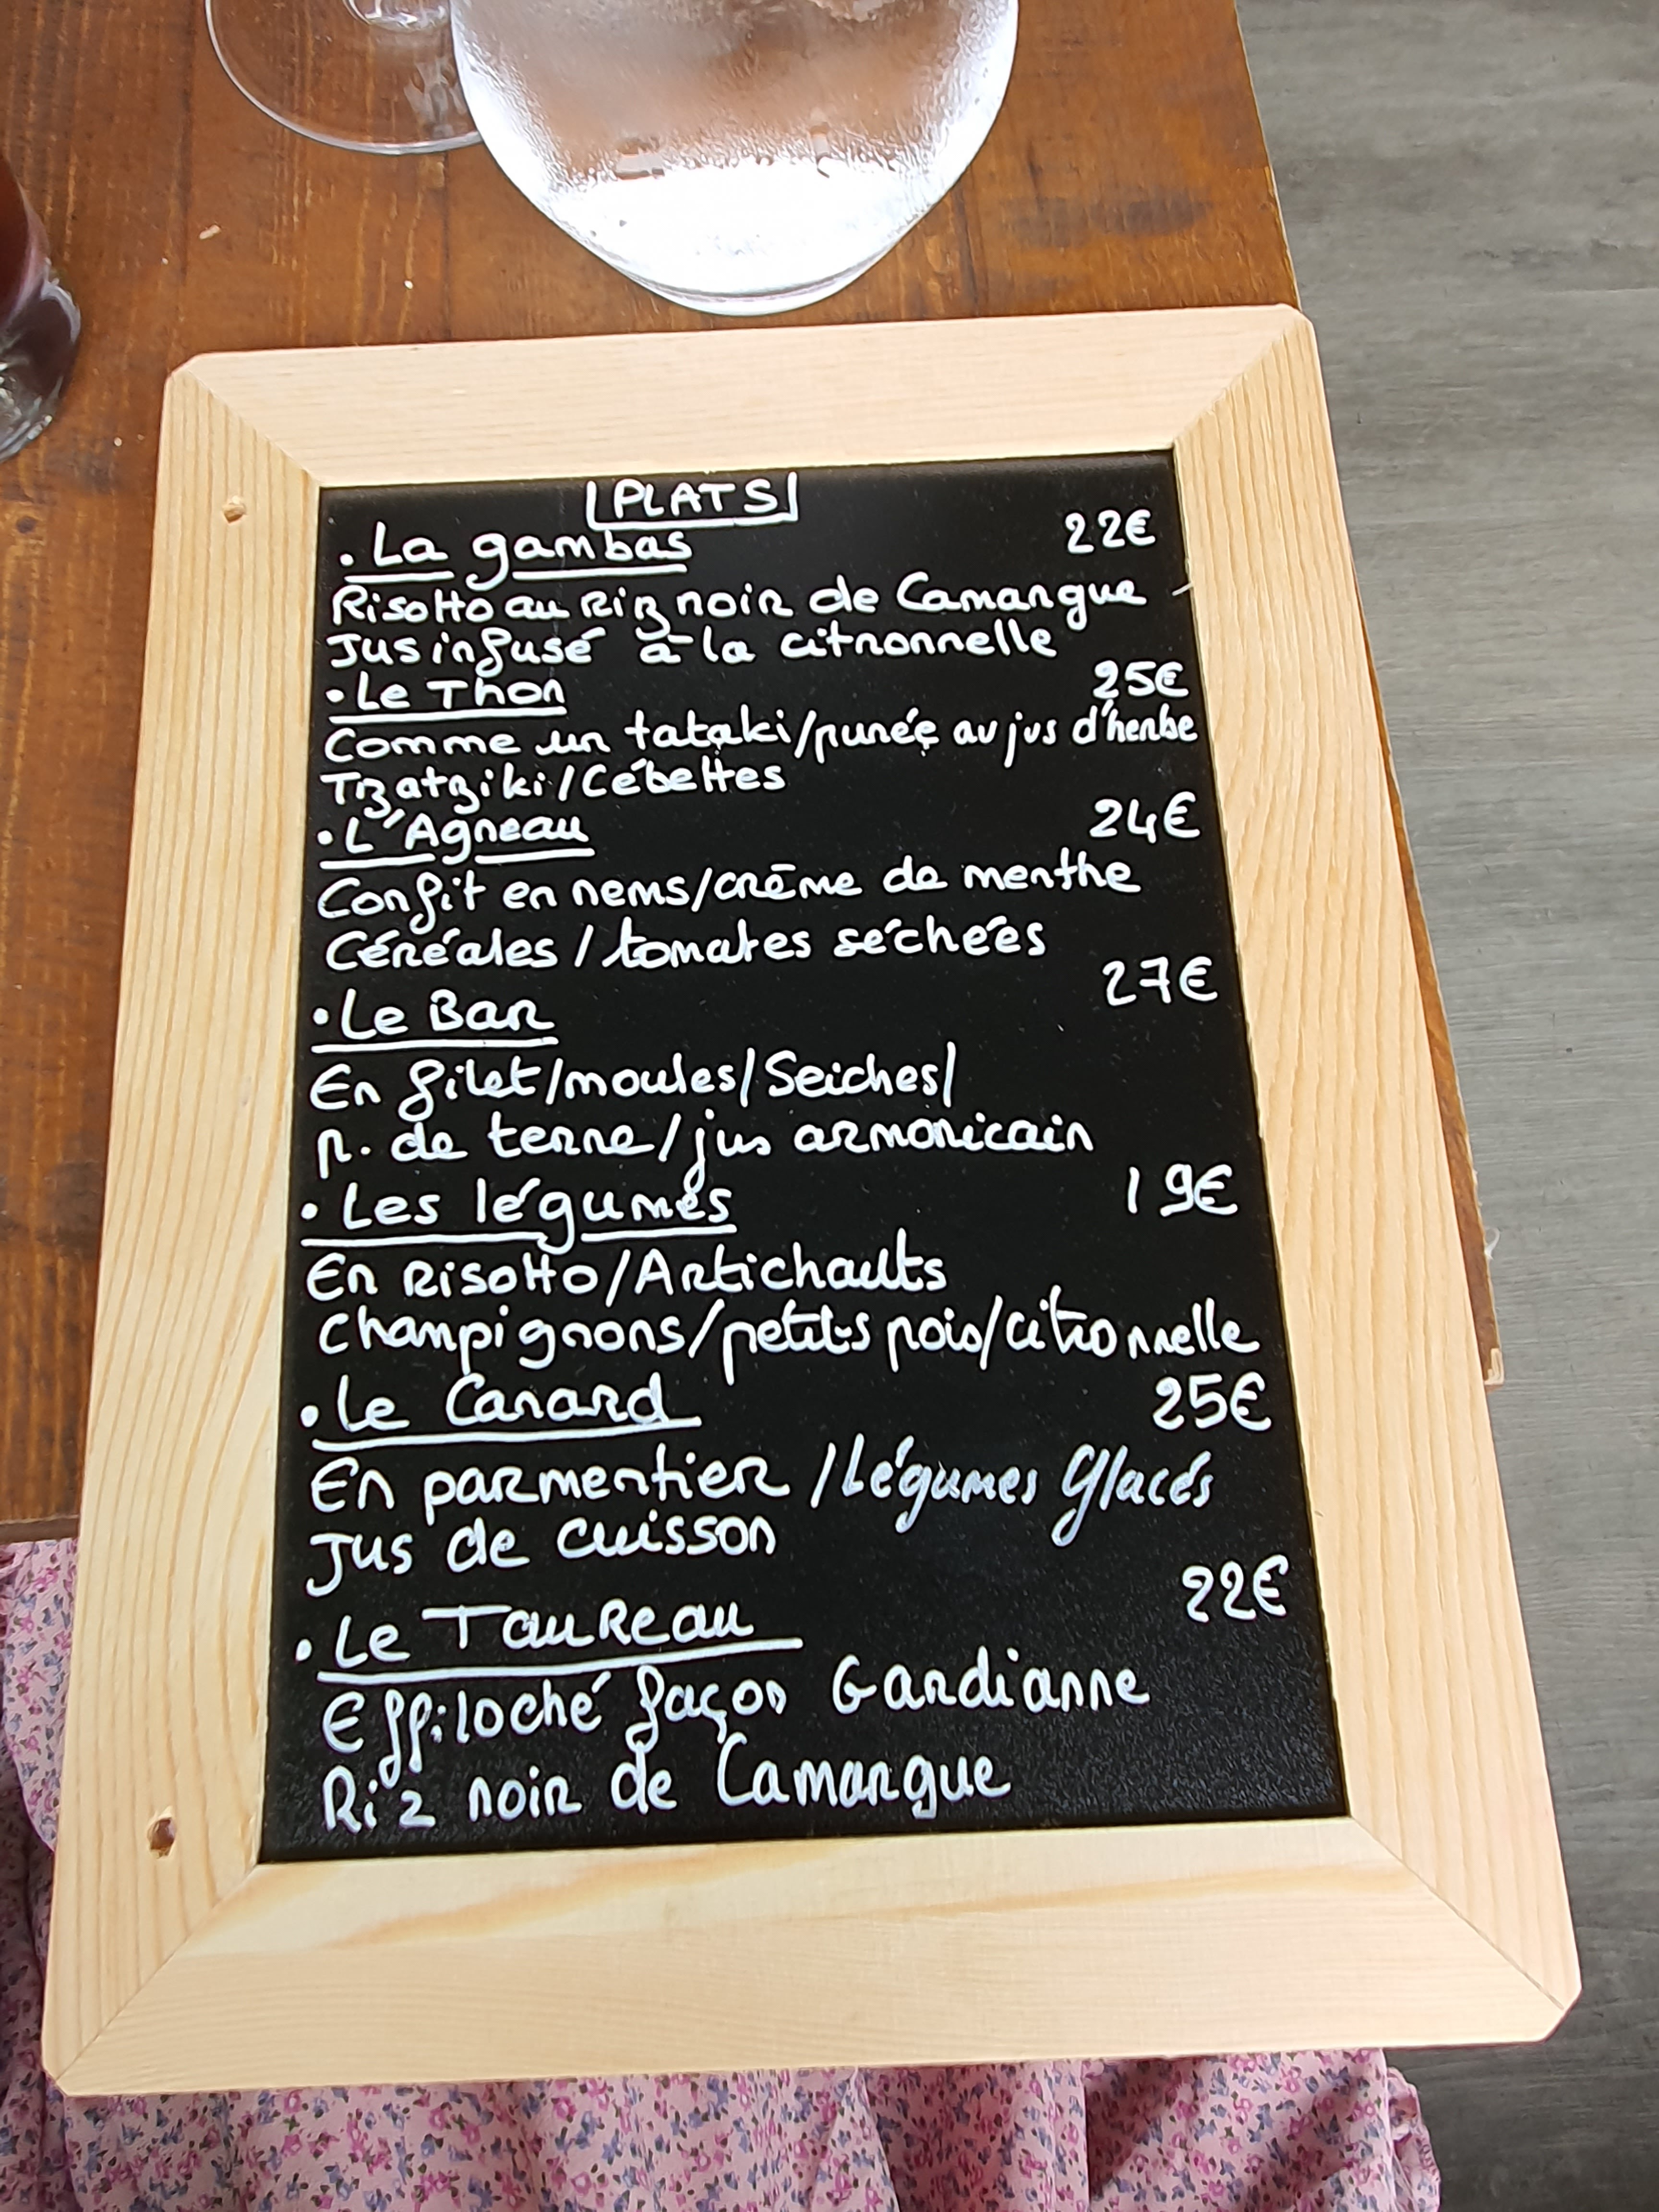 PLATS
• La gambas 22€
Risotto au Riz noir de Camargue
Jus infusé à la citronnelle
• Le Thon 25€
Comme un tataki/purée au jus d'herbe
Tzatziki/Cébettes
• L'Agneau 24€
Confit en nems/crème de menthe
Céréales / tomates séchées
• Le Bar 27€
En filet/moules/Seiches/
p. de terre/jus armoricain
• Les légumes 19€
En Risotto/Artichauts
Champignons/petits pois/citronnelle
• Le Canard 25€
En parmentier /Légumes Glacés
Jus de cuisson
• Le Taureau 22€
Effiloché façon Gardianne
Riz noir de Camargue